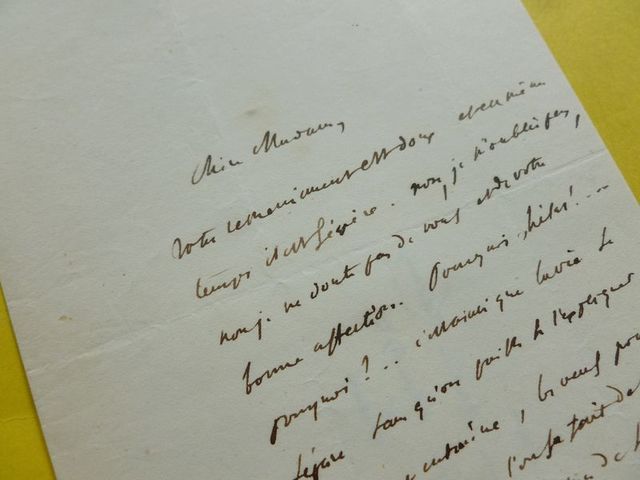 Chère Madame,
Votre remerciement est doux et en même
temps il est sévère. non, je n'oublie pas,
non je ne doute pas de vous et de votre
bonne affection. Pourquoi, hélas! ...
pourquoi? ... c'est ainsi que la vie se
sans qu'on puisse se l'expliquer
entraîne, le vent
l'on se tait